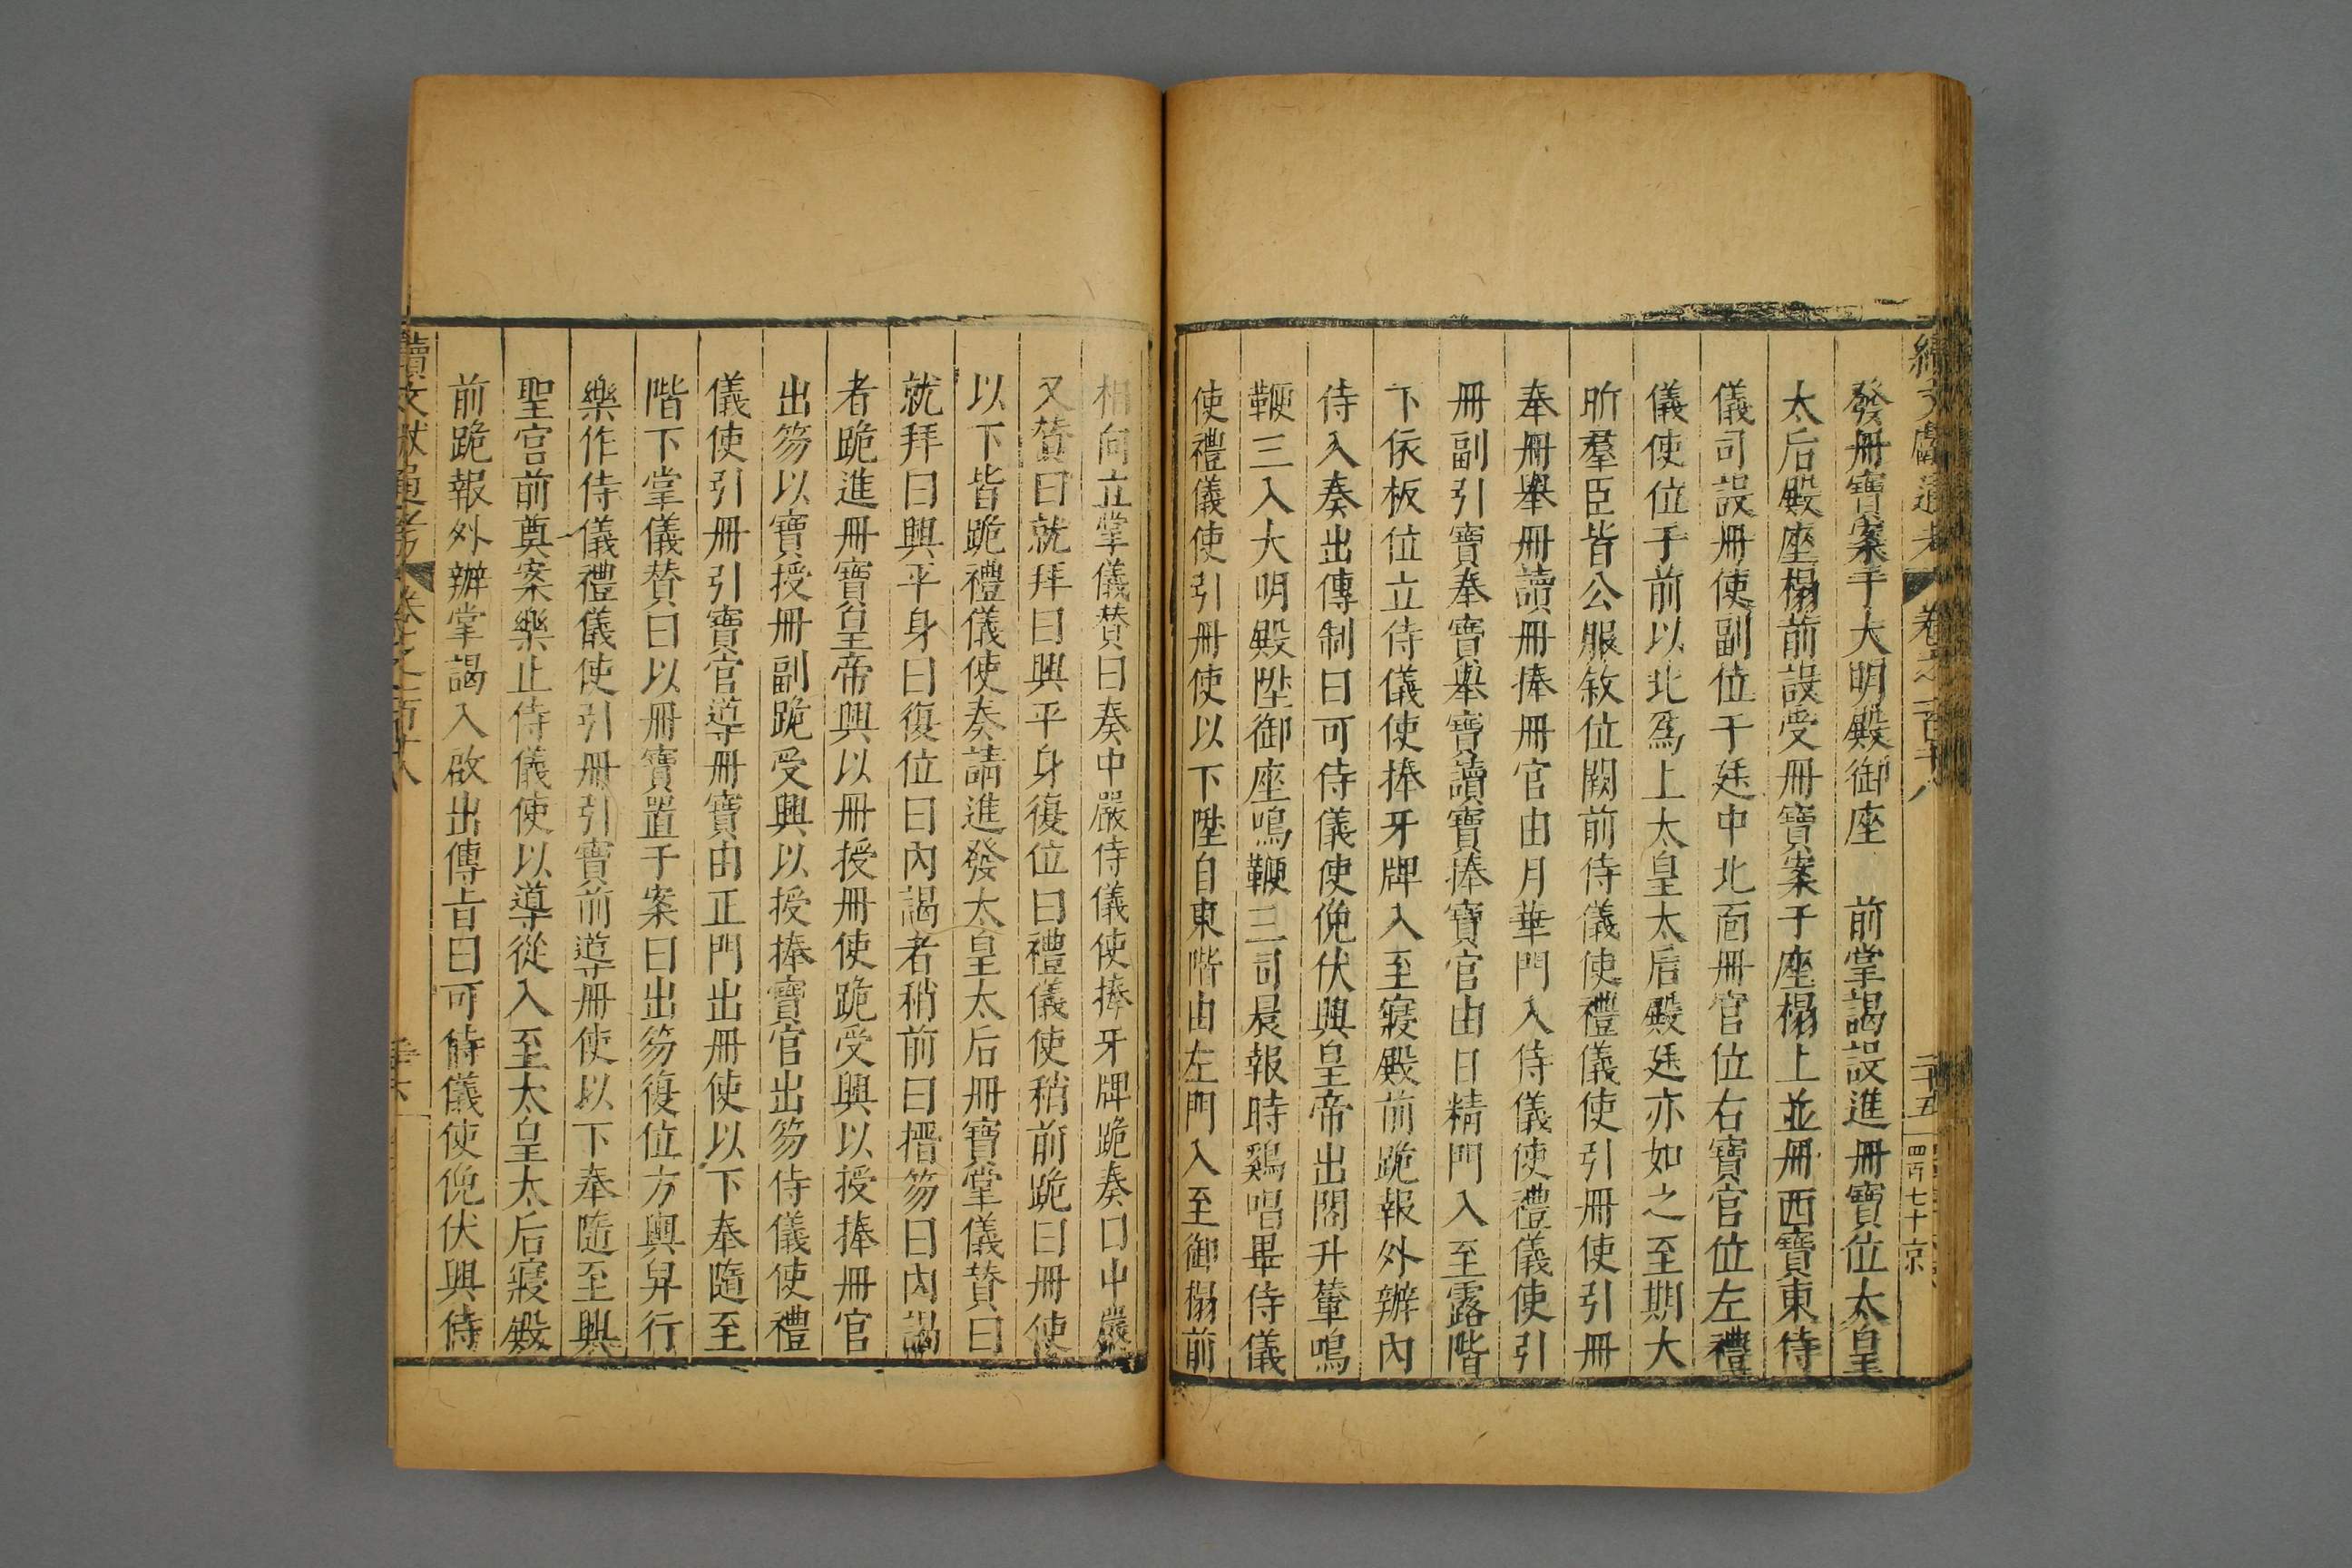 續文獻通考 卷之一百十八 二十五 四百七十 京
發冊寶案于大明殿御座 前掌謁設進冊寶位太皇
太后殿座榻前設受冊寶案于座榻上並冊西寶東侍
儀司設冊使副位于廷中北面冊官位右寶官位左禮
儀使位于前以北爲上太皇太后殿廷亦如之至期大
昕羣臣皆公服敘位闕前侍儀使禮儀使引冊使引冊
奉冊舉冊讀冊捧冊官由月華門入侍儀使禮儀使引
冊副引寶奉寶舉寶讀寶捧寶官由日精門入至露階
下依板位立侍儀使捧牙牌入至寢殿前跪報外辦內
侍入奏出傳制曰可侍儀使俛伏興皇帝出閤升輦鳴
鞭三入大明殿陞御座鳴鞭三司晨報時鷄唱畢侍儀
使禮儀使引冊使以下陞自東階由左門入至御榻前
相向立掌儀贊曰奏中嚴侍儀使捧牙牌跪奏曰中嚴
又贊曰就拜曰興平身復位曰禮儀使稍前跪曰冊使
以下皆跪禮儀使奏請進發太皇太后冊寶掌儀贊曰
就拜曰興平身曰復位曰內謁者稍前曰搢笏曰內謁
者跪進冊寶皇帝興以冊授冊使跪受興以授捧冊官
出笏以寶授冊副跪受興以授捧寶官出笏侍儀使禮
儀使引冊引寶官導冊寶由正門出冊使以下奉隨至
階下掌儀贊曰以冊寶置于案曰出笏復位方輿舁行
樂作侍儀禮儀使引冊引寶前導冊使以下奉隨至興
聖宮前奠案樂止侍儀使以導從入至太皇太后寢殿
前跪報外辦掌謁入啟出傳旨曰可侍儀使俛伏興侍
續文獻通考 卷之一百十八